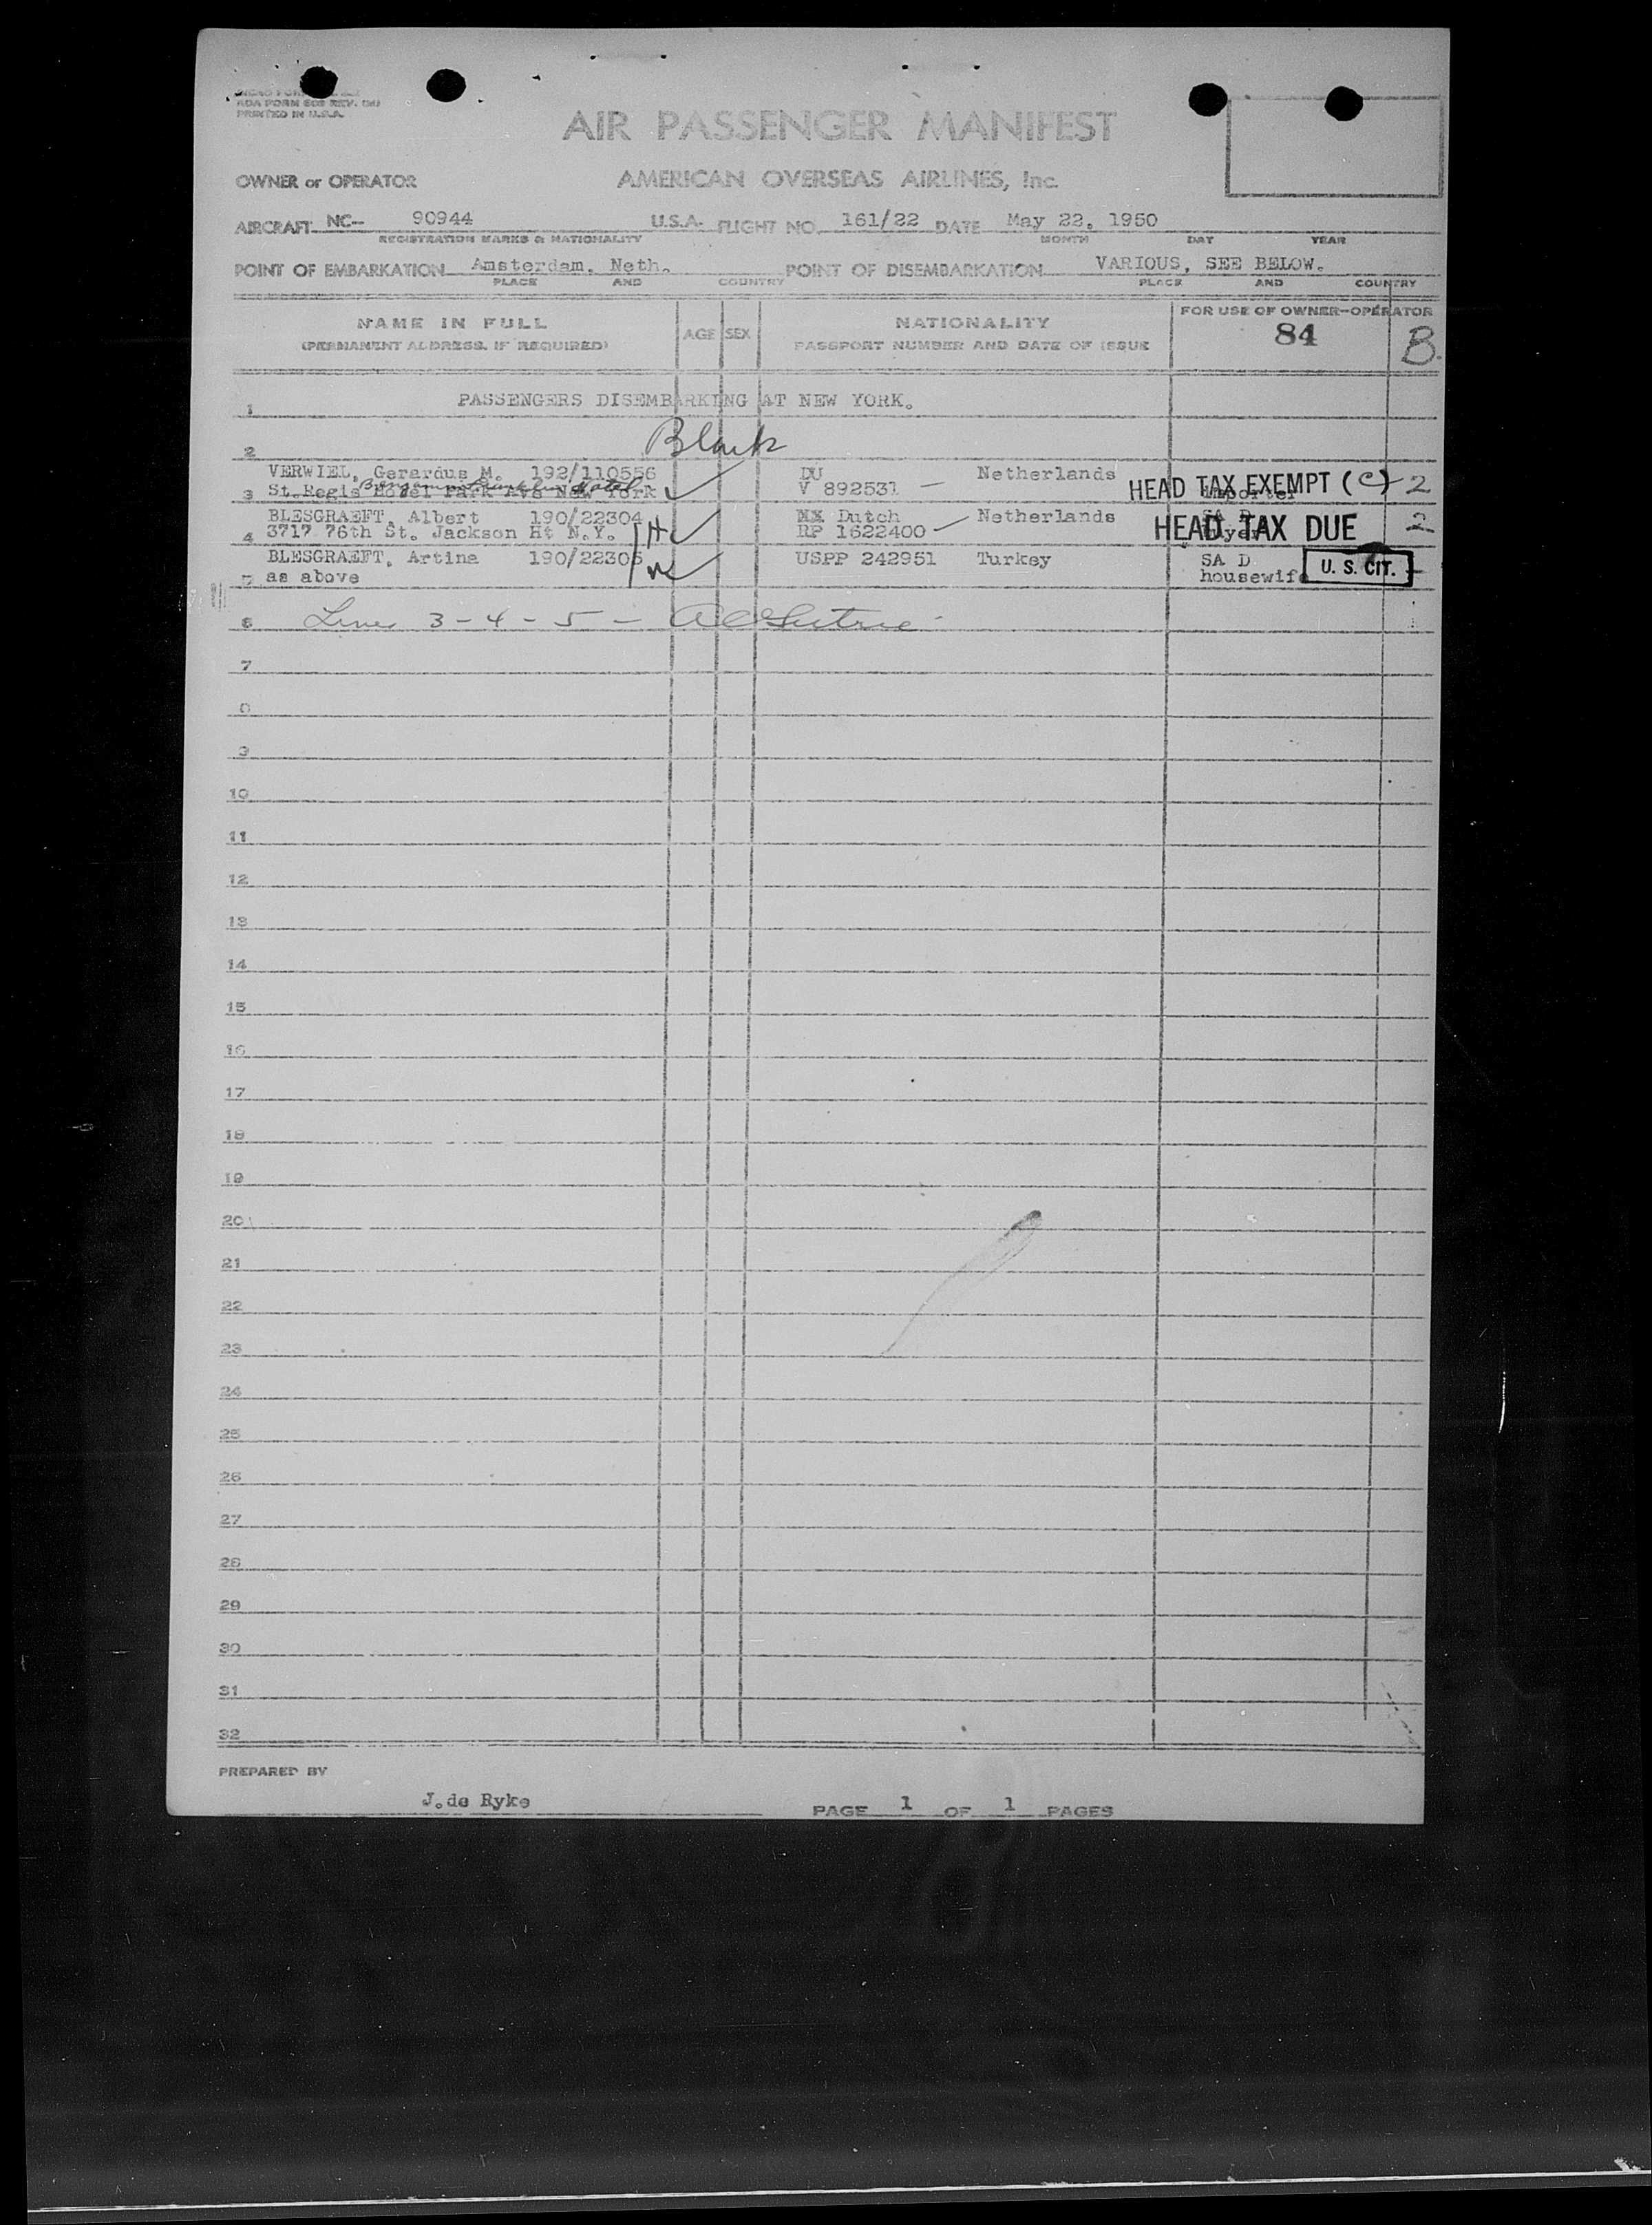 AOA FORM 603 REV.
PRINTED IN U.S.A.
AIR PASSENGER MANIFEST
OWNER or OPERATOR AMERICAN OVERSEAS AIRLINES, Inc.
AIRCRAFT NC— 90944 U.S.A. FLIGHT NO. 161/22 DATE May 22, 1950
REGISTRATION MARKS & NATIONALITY MONTH DAY YEAR
POINT OF EMBARKATION Amsterdam, Neth. POINT OF DISEMBARKATION VARIOUS, SEE BELOW.
PLACE AND COUNTRY PLACE AND COUNTRY
NAME IN FULL AGE SEX NATIONALITY FOR USE OF OWNER-OPERATOR
(PERMANENT ADDRESS, IF REQUIRED) PASSPORT NUMBER AND DATE OF ISSUE 84 B.
1 PASSENGERS DISEMBARKING AT NEW YORK.
2 Blank
VERWIEL, Gerardus M. 192/110556 DU Netherlands
3 St.Regis Hotel Park Ave New York V 892531 — HEAD TAX EXEMPT (C) 2
BLESGRAEFT, Albert 190/22304 H XX Dutch Netherlands SA D
4 3717 76th St. Jackson Ht N.Y. RP 1622400 — HEAD TAX DUE 2
BLESGRAEFT, Artina 190/22305 W USPP 242951 Turkey SA D
5 as above housewife U. S. CIT.
6 Lines 3 - 4 - 5 -
7
8
9
10
11
12
13
14
15
16
17
18
19
20
21
22
23
24
25
26
27
28
29
30
31
32
PREPARED BY
J.de Ryke PAGE 1 OF 1 PAGES